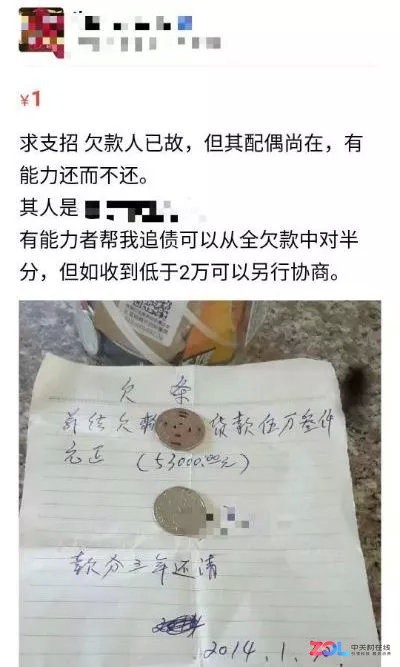 ¥1
求支招 欠款人已故，但其配偶尚在，有
能力还而不还。
其人是
有能力者帮我追债可以从全欠款中对半
分，但如收到低于2万可以另行协商。
欠 条
货款伍万叁仟
元正 (53000.00元)
款分三年还清
2014.1.
ZOL 中关村在线